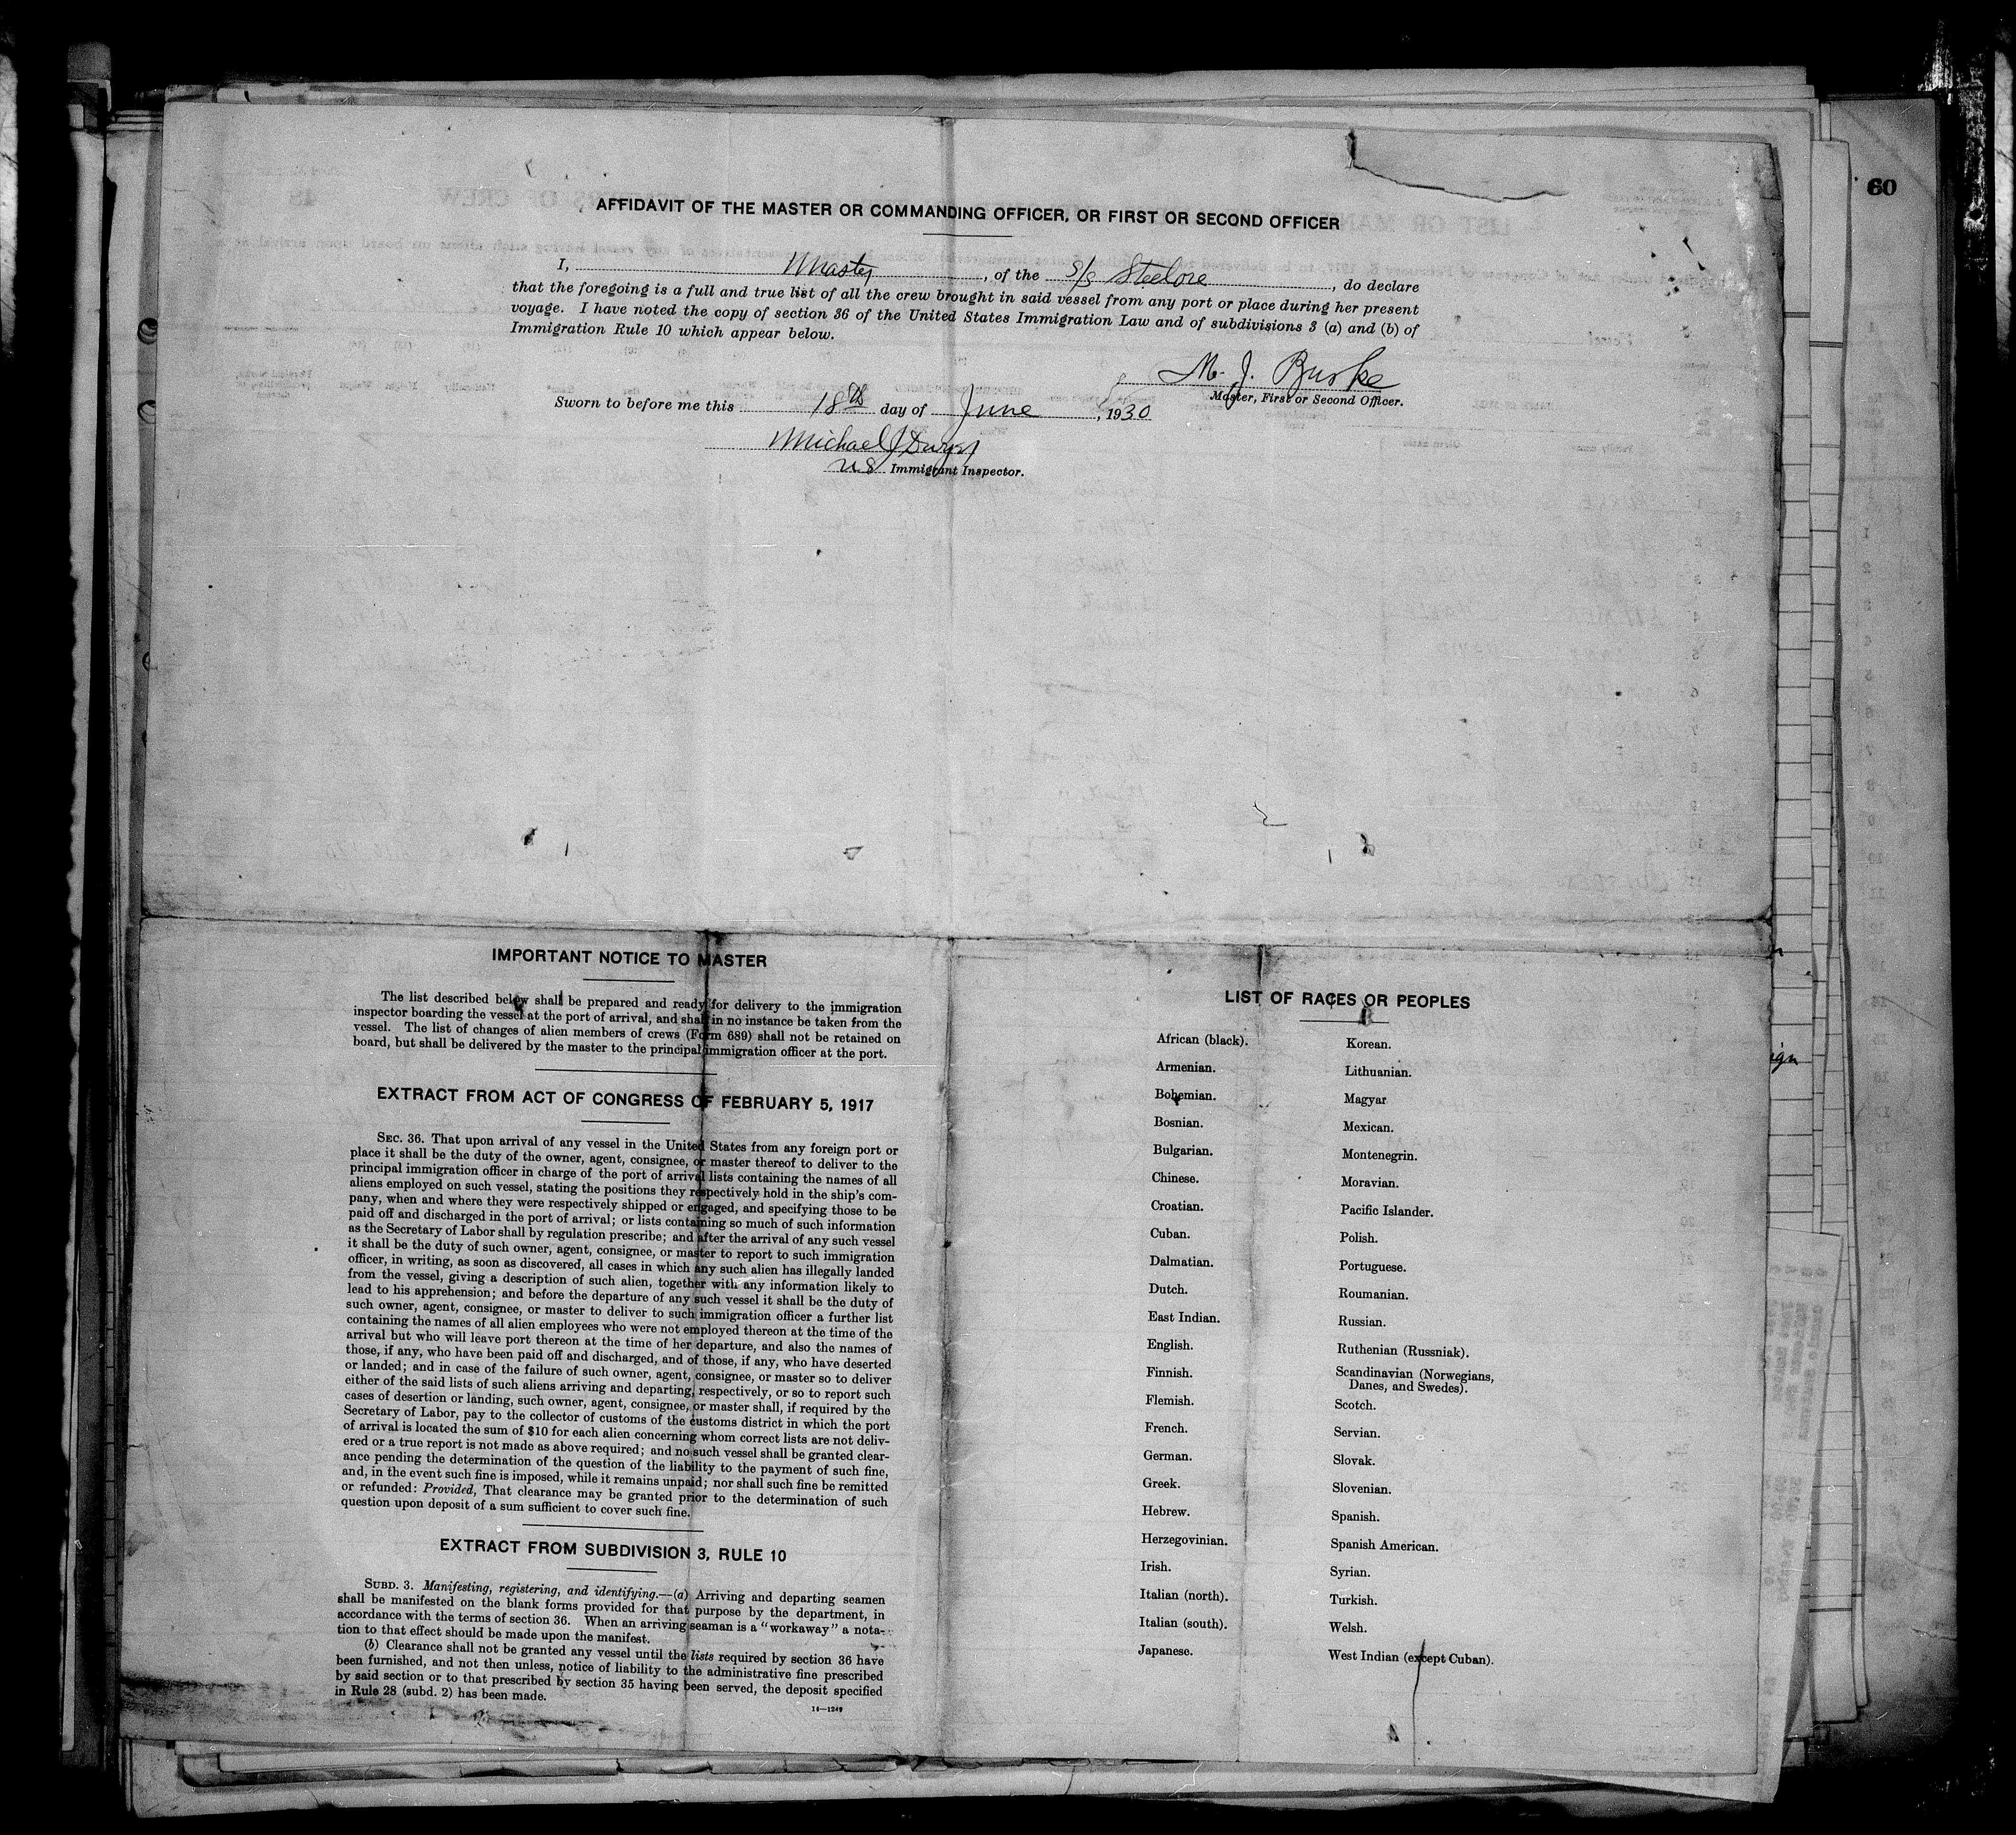 60
AFFIDAVIT OF THE MASTER OR COMMANDING OFFICER, OR FIRST OR SECOND OFFICER
I, Master, of the S/S Steelore, do declare
that the foregoing is a full and true list of all the crew brought in said vessel from any port or place during her present
voyage. I have noted the copy of section 36 of the United States Immigration Law and of subdivisions 3 (a) and (b) of
Immigration Rule 10 which appear below.
M. J. Burke
Master, First or Second Officer.
Sworn to before me this 18th day of June, 1930
Michael J
US Immigrant Inspector.
IMPORTANT NOTICE TO MASTER
The list described below shall be prepared and ready for delivery to the immigration
inspector boarding the vessel at the port of arrival, and shall in no instance be taken from the
vessel. The list of changes of alien members of crews (Form 689) shall not be retained on
board, but shall be delivered by the master to the principal immigration officer at the port.
EXTRACT FROM ACT OF CONGRESS OF FEBRUARY 5, 1917
SEC. 36. That upon arrival of any vessel in the United States from any foreign port or
place it shall be the duty of the owner, agent, consignee, or master thereof to deliver to the
principal immigration officer in charge of the port of arrival lists containing the names of all
aliens employed on such vessel, stating the positions they respectively hold in the ship's com-
pany, when and where they were respectively shipped or engaged, and specifying those to be
paid off and discharged in the port of arrival; or lists containing so much of such information
as the Secretary of Labor shall by regulation prescribe; and after the arrival of any such vessel
it shall be the duty of such owner, agent, consignee, or master to report to such immigration
officer, in writing, as soon as discovered, all cases in which any such alien has illegally landed
from the vessel, giving a description of such alien, together with any information likely to
lead to his apprehension; and before the departure of any such vessel it shall be the duty of
such owner, agent, consignee, or master to deliver to such immigration officer a further list
containing the names of all alien employees who were not employed thereon at the time of the
arrival but who will leave port thereon at the time of her departure, and also the names of
those, if any, who have been paid off and discharged, and of those, if any, who have deserted
or landed; and in case of the failure of such owner, agent, consignee, or master so to deliver
either of the said lists of such aliens arriving and departing, respectively, or so to report such
cases of desertion or landing, such owner, agent, consignee, or master shall, if required by the
Secretary of Labor, pay to the collector of customs of the customs district in which the port
of arrival is located the sum of $10 for each alien concerning whom correct lists are not deliv-
ered or a true report is not made as above required; and no such vessel shall be granted clear-
ance pending the determination of the question of the liability to the payment of such fine,
and, in the event such fine is imposed, while it remains unpaid; nor shall such fine be remitted
or refunded: Provided, That clearance may be granted prior to the determination of such
question upon deposit of a sum sufficient to cover such fine.
EXTRACT FROM SUBDIVISION 3, RULE 10
SUBD. 3. Manifesting, registering, and identifying.—(a) Arriving and departing seamen
shall be manifested on the blank forms provided for that purpose by the department, in
accordance with the terms of section 36. When an arriving seaman is a "workaway" a nota-
tion to that effect should be made upon the manifest.
(b) Clearance shall not be granted any vessel until the lists required by section 36 have
been furnished, and not then unless, notice of liability to the administrative fine prescribed
by said section or to that prescribed by section 35 having been served, the deposit specified
in Rule 28 (subd. 2) has been made.
14—1249
LIST OF RACES OR PEOPLES
African (black).
Armenian.
Bohemian.
Bosnian.
Bulgarian.
Chinese.
Croatian.
Cuban.
Dalmatian.
Dutch.
East Indian.
English.
Finnish.
Flemish.
French.
German.
Greek.
Hebrew.
Herzegovinian.
Irish.
Italian (north).
Italian (south).
Japanese.
Korean.
Lithuanian.
Magyar
Mexican.
Montenegrin.
Moravian.
Pacific Islander.
Polish.
Portuguese.
Roumanian.
Russian.
Ruthenian (Russniak).
Scandinavian (Norwegians,
Danes, and Swedes).
Scotch.
Servian.
Slovak.
Slovenian.
Spanish.
Spanish American.
Syrian.
Turkish.
Welsh.
West Indian (except Cuban).